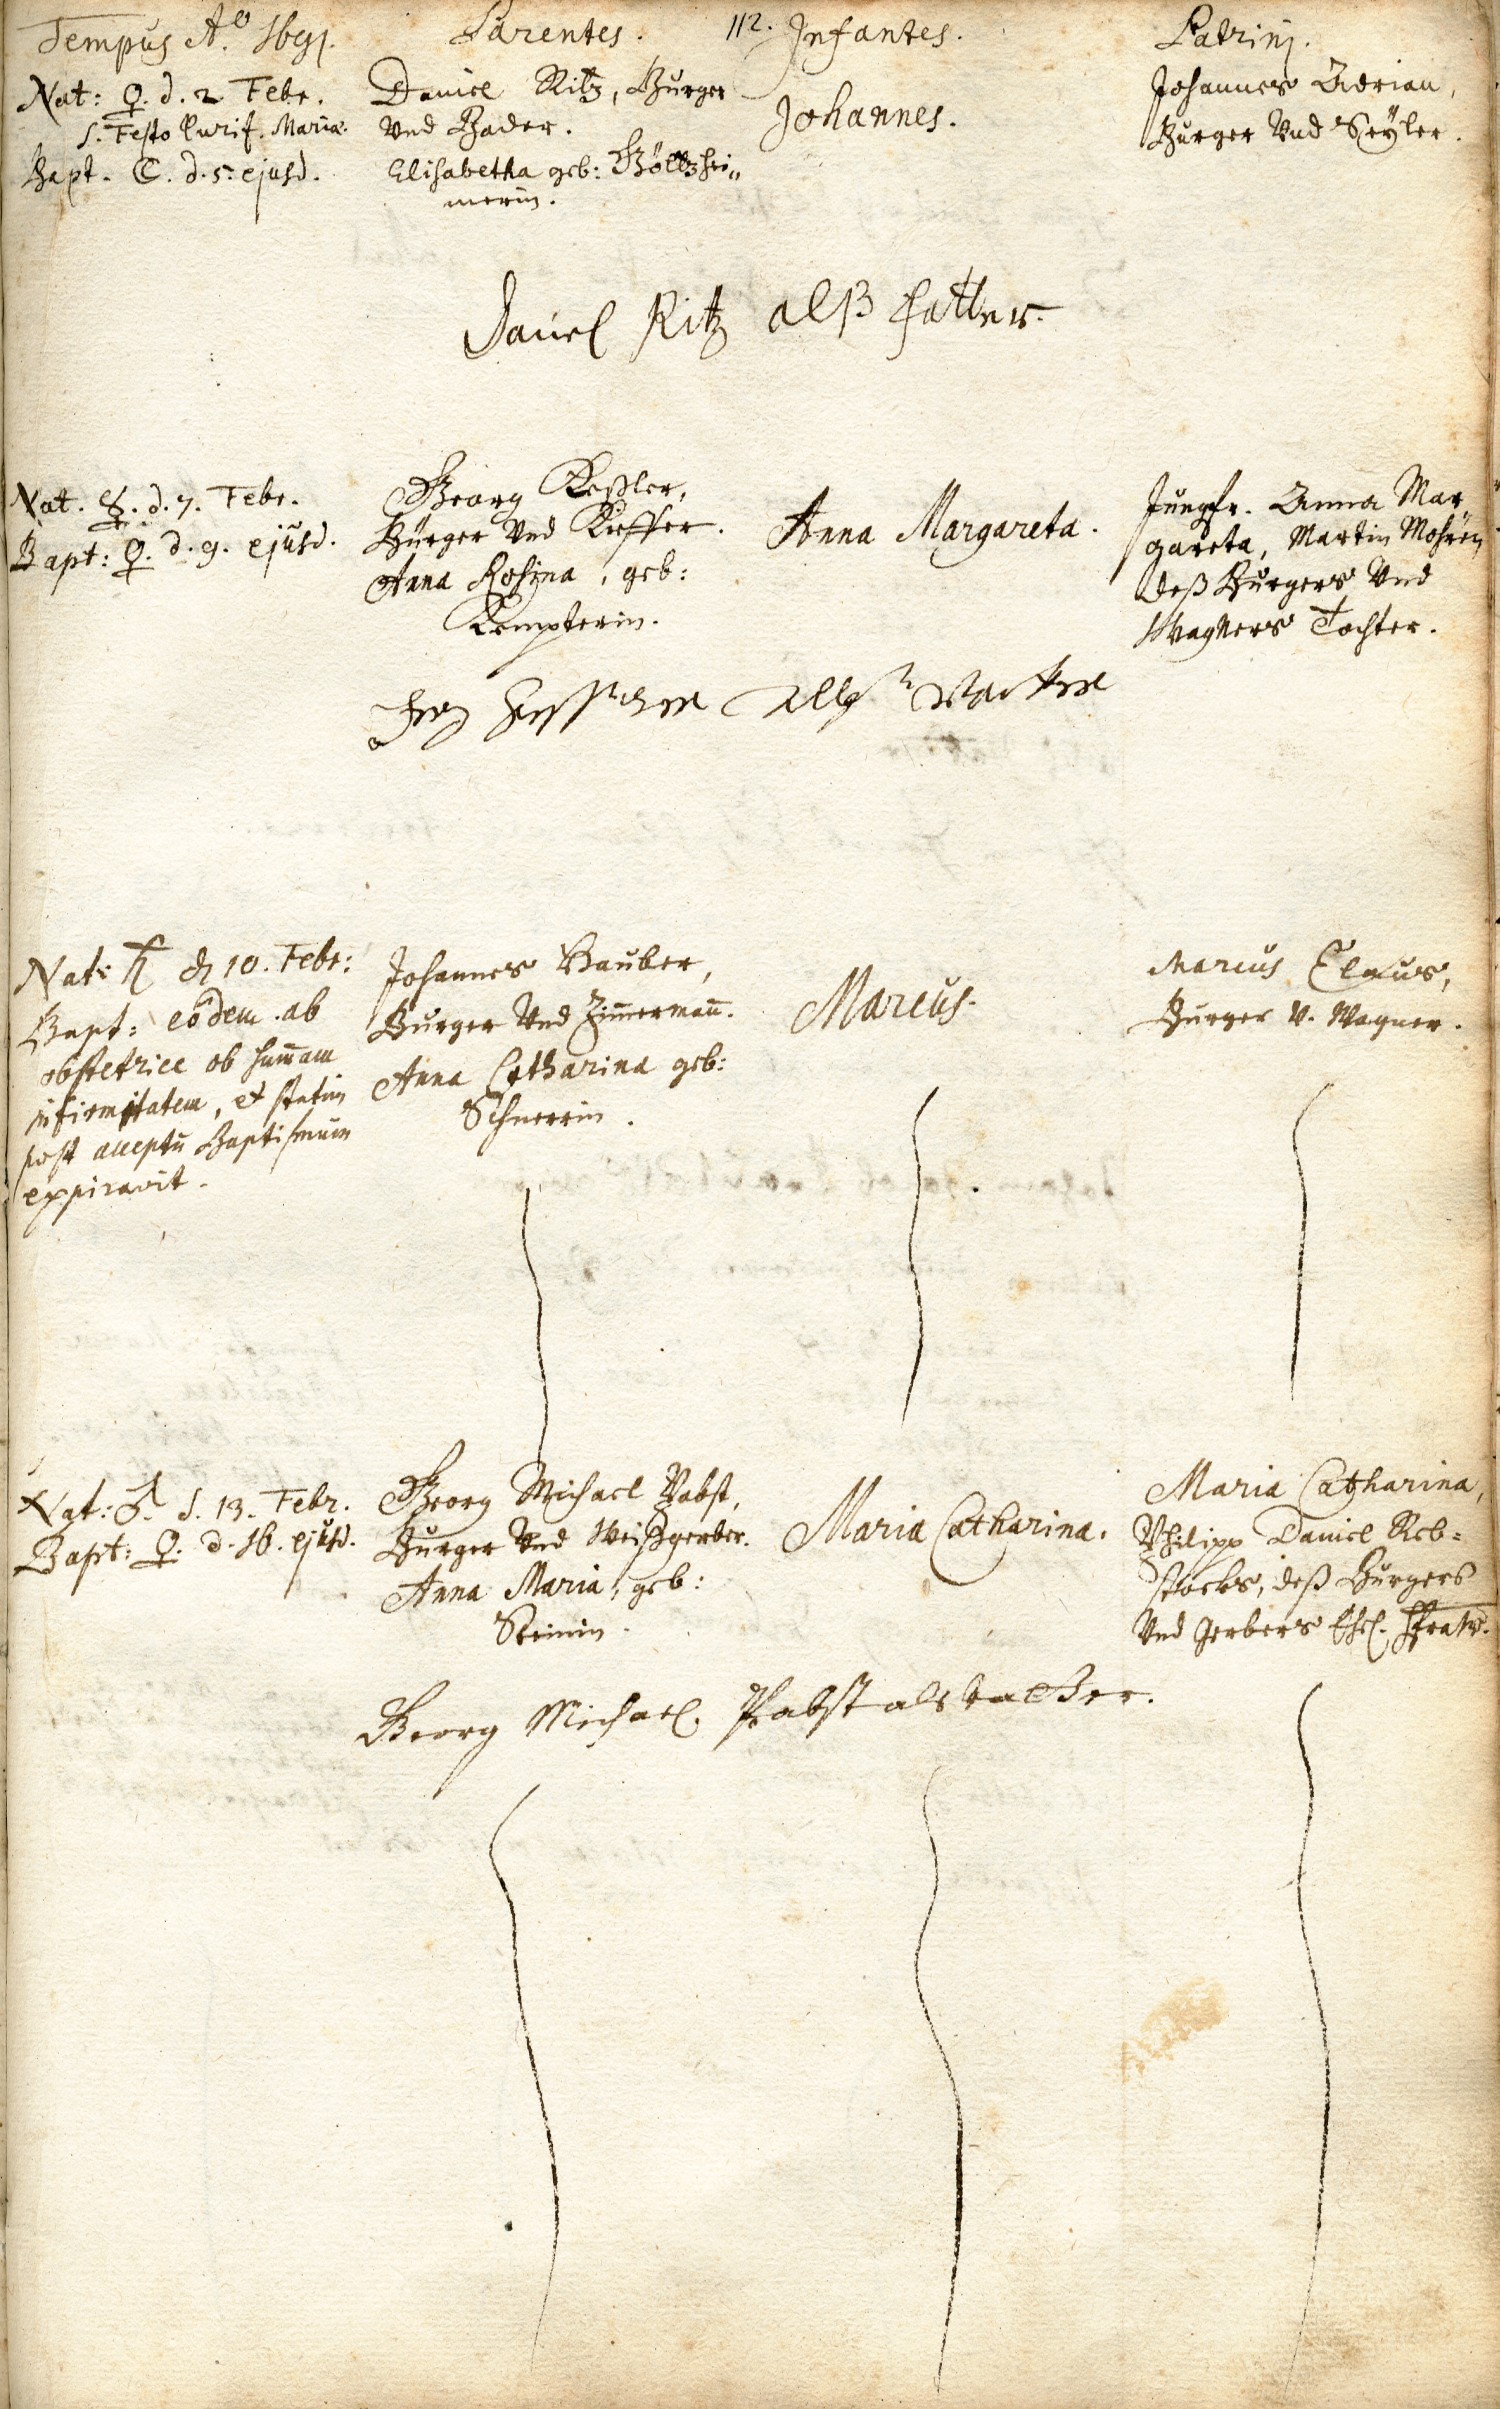 112.
Tempus Aº. 1691.
Nat: ♀. d. 2 Febr.
s. Festo Purif. Mariæ.
Bapt. ☾. d. 5. ejusd.
Parentes.
Daniel Ritz, Burger
Vnd Bader.
Elisabetha geb: Böltzhei„
merin.
Infantes.
Johannes.
Patrinj.
Johannes Adrian,
Burger Vnd Seÿler.
Daniel Ritz alß fatter.
Nat. ☿. d. 7. Febr.
Bapt: ♀. d. 9. ejusd.
Georg Keßler,
Burger Vnd Kieffer.
Anna Rosina, geb:
Kempterin.
Anna Margareta.
Jungfr. Anna Mar„
gareta, Martin Mohren
deß Burgers Vnd
Wagners Tochter.
Nat: ♄ d 10. Febr:
Bapt: eodem ab
obstetrice ob sum̄am
infirmitatem, et statim
post acceptū Baptismum
expiravit.
Johannes Bauber,
Burger Vnd Zim̄erman̄.
Anna Catharina geb:
Schnerrin.
Marcus.
Marcus Claus,
Burger V. Wagner.
Nat: ♂. d. 13. Febr.
Bapt: ♀. d. 16. ejusd.
Georg Michael Pabst,
Burger Vnd Weißgerber.
Anna Maria, geb:
Steinin.
Maria Catharina.
Maria Catharina,
Philipp Daniel Reb=
stocks, deß Burgers
Vnd Gerbers Ehel.
Georg Michael Pabst als vatter.